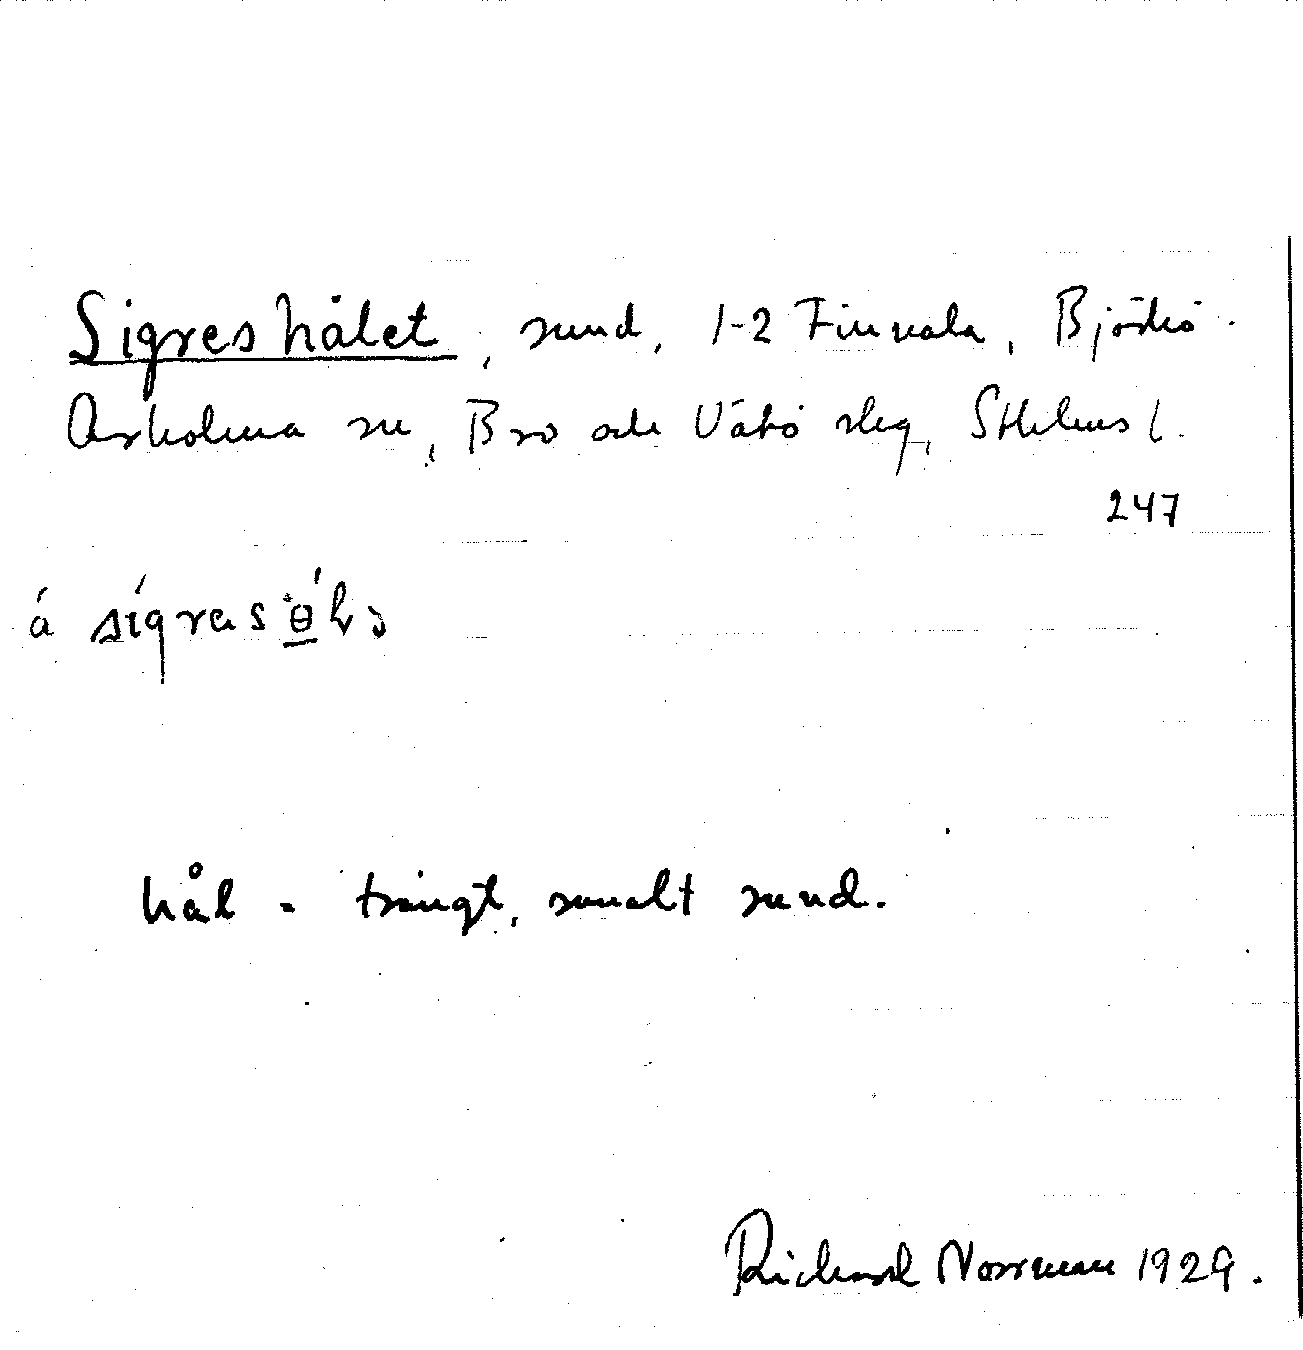 Sigreshålet, sund, 1-2 Finnala, Björkö-
Arholma sn, Bro och Vätö slg, Sthlms l.
247
hål = trångt, smalt sund.
Richard Norrman 1929.